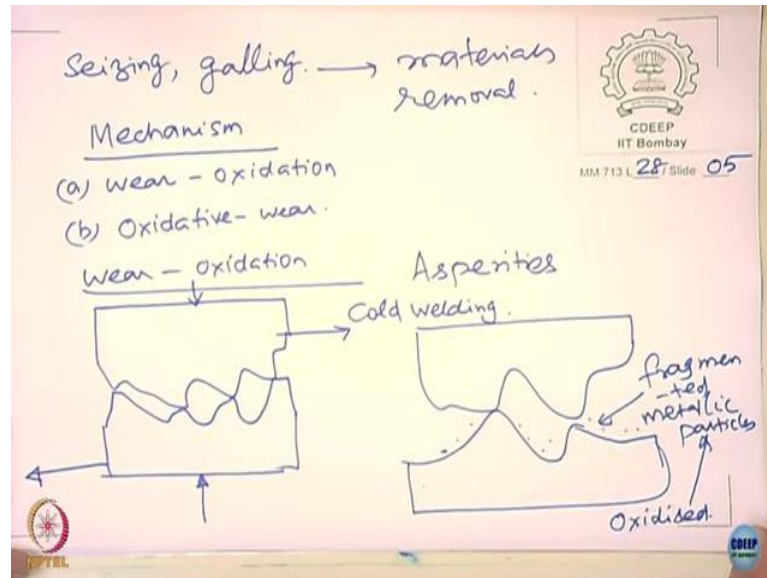 Seizing, galling. → materials
removal.
CDEEP
IIT Bombay
MM 713 L 28 / Slide 05
Mechanism
(a) wear - oxidation
(b) Oxidative - wear.
wear - oxidation
Asperities
Cold welding.
fragmen
-ted
metallic
particles
Oxidised.
NPTEL
CDEEP
IIT BOMBAY